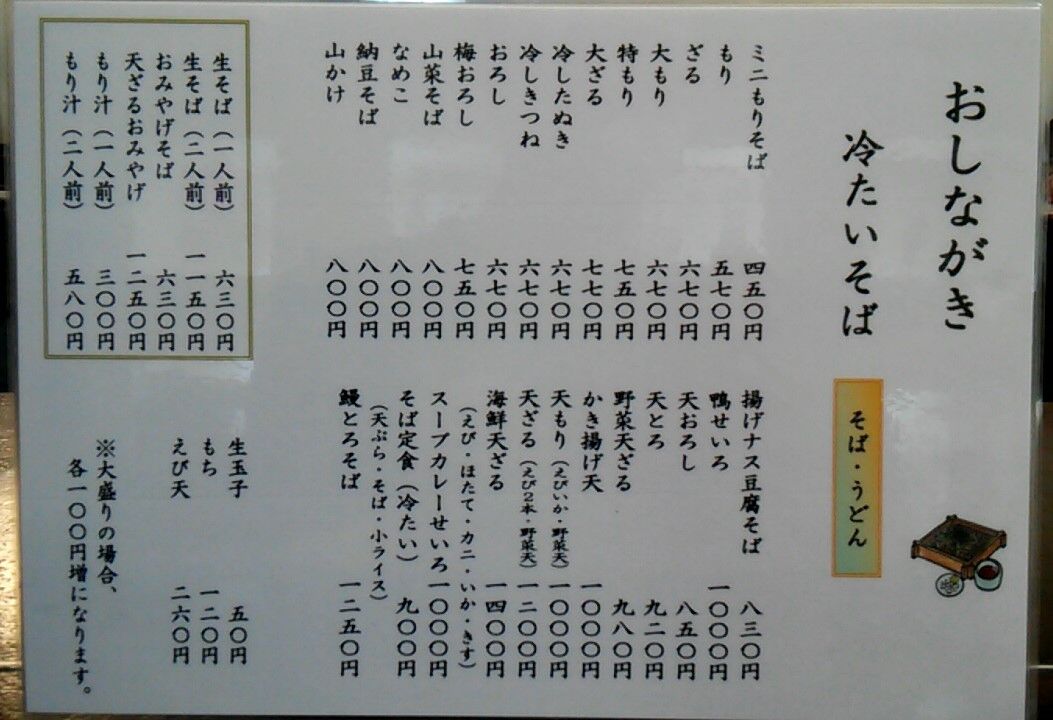 おしながき
冷たいそば
そば・うどん
ミニもりそば 四五〇円
もり 五七〇円
ざる 六七〇円
大もり 六七〇円
特もり 七五〇円
大ざる 七七〇円
冷したぬき 六七〇円
冷しきつね 六七〇円
おろし 六七〇円
梅おろし 七五〇円
山菜そば 八〇〇円
なめこ 八〇〇円
納豆そば 八〇〇円
山かけ 八〇〇円
生そば（一人前） 六三〇円
生そば（二人前） 一一五〇円
おみやげそば 六三〇円
天ざるおみやげ 一二五〇円
もり汁（一人前） 三〇〇円
もり汁（二人前） 五八〇円
揚げナス豆腐そば 八三〇円
鴨せいろ 一〇〇〇円
天おろし 八五〇円
天とろ 九二〇円
野菜天ざる 九八〇円
かき揚げ天 一〇〇〇円
天もり（えびいか・野菜天） 一〇〇〇円
天ざる（えび2本・野菜天） 一二〇〇円
海鮮天ざる 一四〇〇円
（えび・ほたて・カニ・いか・きす）
スープカレーせいろ 一〇〇〇円
そば定食（冷たい） 九〇〇円
（天ぷら・そば・小ライス）
鰻とろそば 一二五〇円
生玉子 五〇円
もち 一二〇円
えび天 二六〇円
※大盛りの場合、
各一〇〇円増になります。